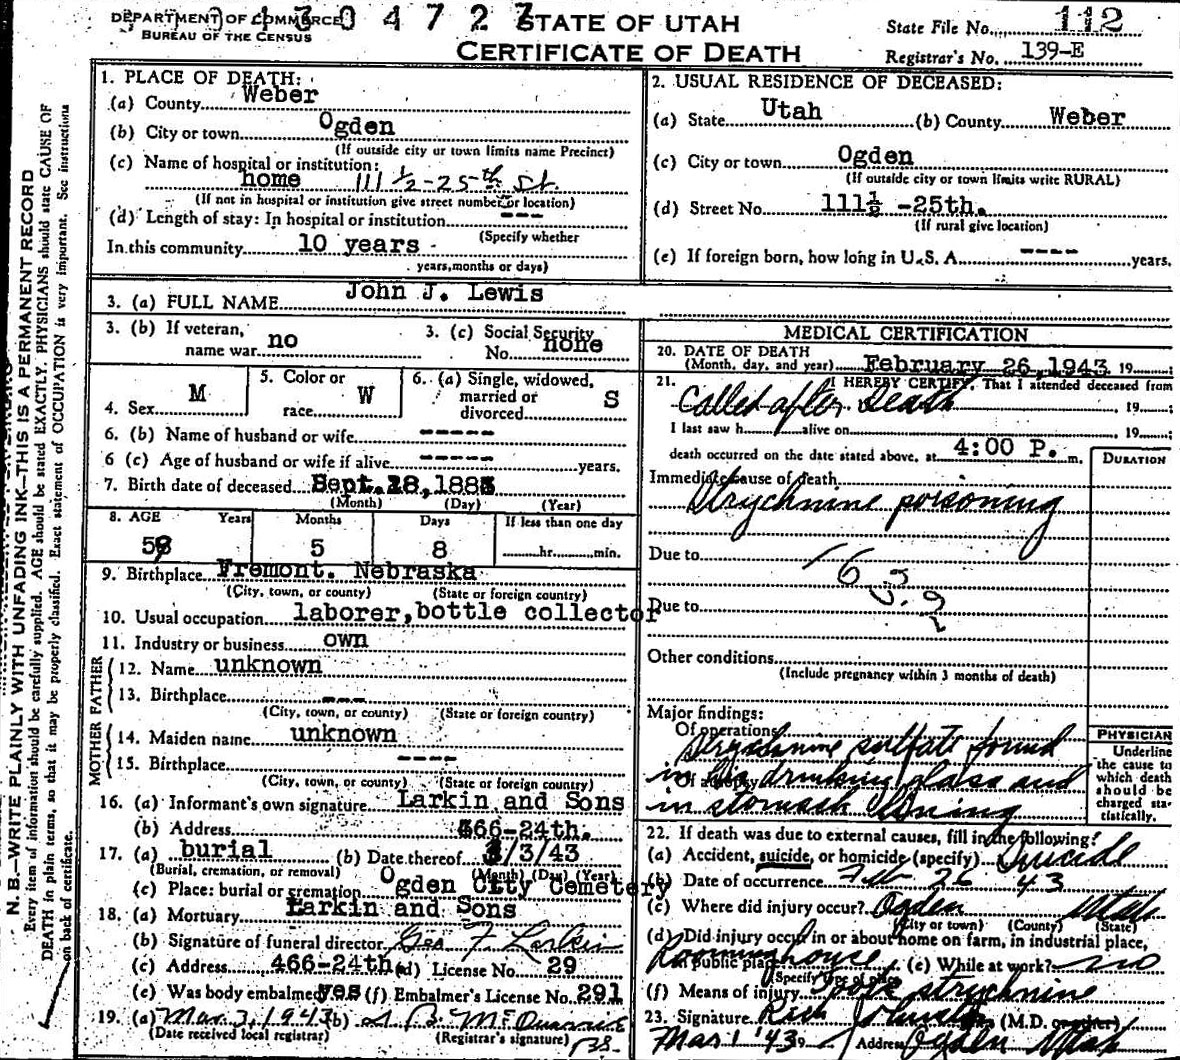 0 4 3 0 4 7 2 7
DEPARTMENT OF COMMERCE
BUREAU OF THE CENSUS
STATE OF UTAH
CERTIFICATE OF DEATH
State File No. 112
Registrar's No. 139-E
N. B.—WRITE PLAINLY WITH UNFADING INK—THIS IS A PERMANENT RECORD
Every item of information should be carefully supplied. AGE should be stated EXACTLY. PHYSICIANS should state CAUSE OF
DEATH in plain terms, so that it may be properly classified. Exact statement of OCCUPATION is very important. See instructions
on back of certificate.
1. PLACE OF DEATH:
(a) County Weber
(b) City or town Ogden
(If outside city or town limits name Precinct)
(c) Name of hospital or institution:
home 111 ½-25th St.
(If not in hospital or institution give street number or location)
(d) Length of stay: In hospital or institution ---
(Specify whether
In this community 10 years
years, months or days)
2. USUAL RESIDENCE OF DECEASED:
(a) State Utah (b) County Weber
(c) City or town Ogden
(If outside city or town limits write RURAL)
(d) Street No. 111½ -25th.
(If rural give location)
(e) If foreign born, how long in U. S. A. ---- years.
3. (a) FULL NAME John J. Lewis
3. (b) If veteran, name war no
3. (c) Social Security No. none
4. Sex M
5. Color or race W
6. (a) Single, widowed, married or divorced S
6. (b) Name of husband or wife -----
6 (c) Age of husband or wife if alive ----- years.
7. Birth date of deceased Sept. 18, 188
(Month) (Day) (Year)
8. AGE Years Months Days If less than one day
5 5 8 hr. min.
9. Birthplace Fremont. Nebraska
(City, town, or county) (State or foreign country)
10. Usual occupation laborer,bottle collector
11. Industry or business own
FATHER
12. Name unknown
13. Birthplace ---
(City, town, or county) (State or foreign country)
MOTHER
14. Maiden name unknown
15. Birthplace ----
(City, town, or county) (State or foreign country)
16. (a) Informant's own signature Larkin and Sons
(b) Address 466-24th.
17. (a) burial (b) Date thereof 3/3/43
(Burial, cremation, or removal) (Month) (Day) (Year)
(c) Place: burial or cremation Ogden City Cemetery
18. (a) Mortuary Larkin and Sons
(b) Signature of funeral director Geo F. Larkin
(c) Address 466-24th (d) License No. 29
(e) Was body embalmed yes (f) Embalmer's License No. 291
19. (a) Mar 3, 1943 (b)
(Date received local registrar) (Registrar's signature)
MEDICAL CERTIFICATION
20. DATE OF DEATH
(Month, day, and year) February 26,1943 19
21. I HEREBY CERTIFY, That I attended deceased from
Called after Death 19
I last saw h alive on 19
death occurred on the date stated above, at 4:00 P. m.
DURATION
Immediate cause of death
Strychnine poisoning
Due to
163
Due to
Other conditions
(Include pregnancy within 3 months of death)
Major findings:
Of operations
Strychnine sulfate found
Of autopsy
in his drinking glass and
in stomach lining
PHYSICIAN
Underline the cause to which death should be charged statistically.
22. If death was due to external causes, fill in the following:
(a) Accident, suicide, or homicide (specify) Suicide
(b) Date of occurrence Feb 26 43
(c) Where did injury occur? Ogden Utah
(City or town) (County) (State)
(d) Did injury occur in or about home on farm, in industrial place,
in public place? Rooming house (e) While at work? no
(Specify type of place)
(f) Means of injury Took strychnine
23. Signature Rich Johnston (M.D. or other)
Mar 1 '43 Address Ogden Utah